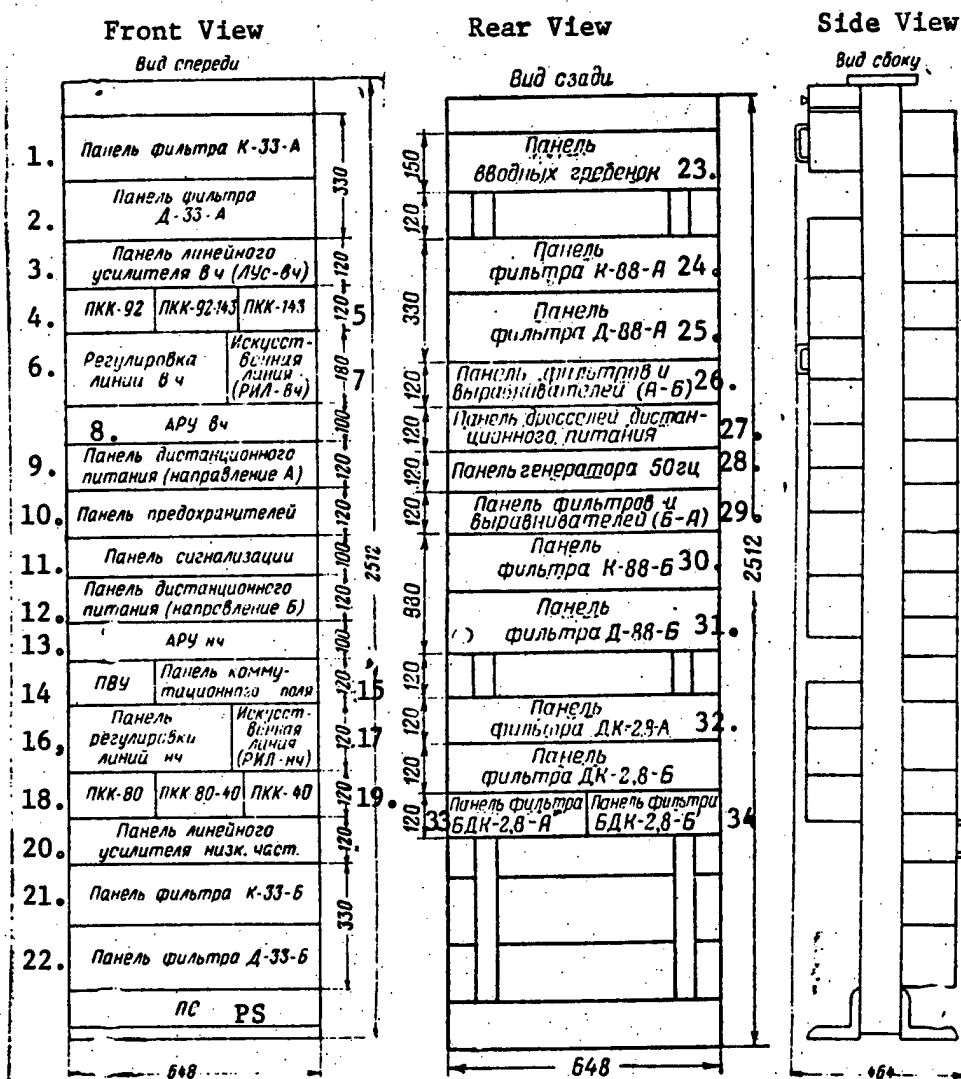 Front View
Вид спереди
1. Панель фильтра К-33-А
2. Панель фильтра
Д-33-А
330
3. Панель линейного
усилителя вч (ЛУС-вч)
120
4. ПКК-92 ПКК-92-143 ПКК-143 5
120
6. Регулировка
линии вч
Искусст-
венная
линия
(РИЛ-вч)
7
180
8. АРУ вч
100
9. Панель дистанционного
питания (направление А)
120
10. Панель предохранителей
120
11. Панель сигнализации
100
12. Панель дистанционного
питания (направление Б)
120
13. АРУ нч
100
14 ПВУ
Панель комму-
тационного поля
15
120
16, Панель
регулировки
линий нч
Искусст-
венная
линия
(РИЛ-нч)
17
120
18. ПКК-80 ПКК 80-40 ПКК-40 19.
120
20. Панель линейного
усилителя низк. част.
120
21. Панель фильтра К-33-Б
22. Панель фильтра Д-33-Б
330
ПС PS
2512
648
Rear View
Вид сзади
Панель
вводных гребенок 23.
150
120
Панель
фильтра К-88-А 24.
Панель
фильтра Д-88-А 25.
330
Панель фильтров и
выравнивателей (А-Б) 26.
120
Панель дросселей дистан-
ционного питания 27.
120
Панель генератора 50гц 28.
120
Панель фильтров и
выравнивателей (Б-А) 29.
120
Панель
фильтра К-88-Б 30.
Панель
фильтра Д-88-Б 31.
330
120
Панель
фильтра ДК-2,8-А 32.
120
Панель
фильтра ДК-2,8-Б
120
33 Панель фильтра
БДК-2,8-А
Панель фильтра
БДК-2,8-Б
34
120
2512
648
Side View
Вид сбоку
464